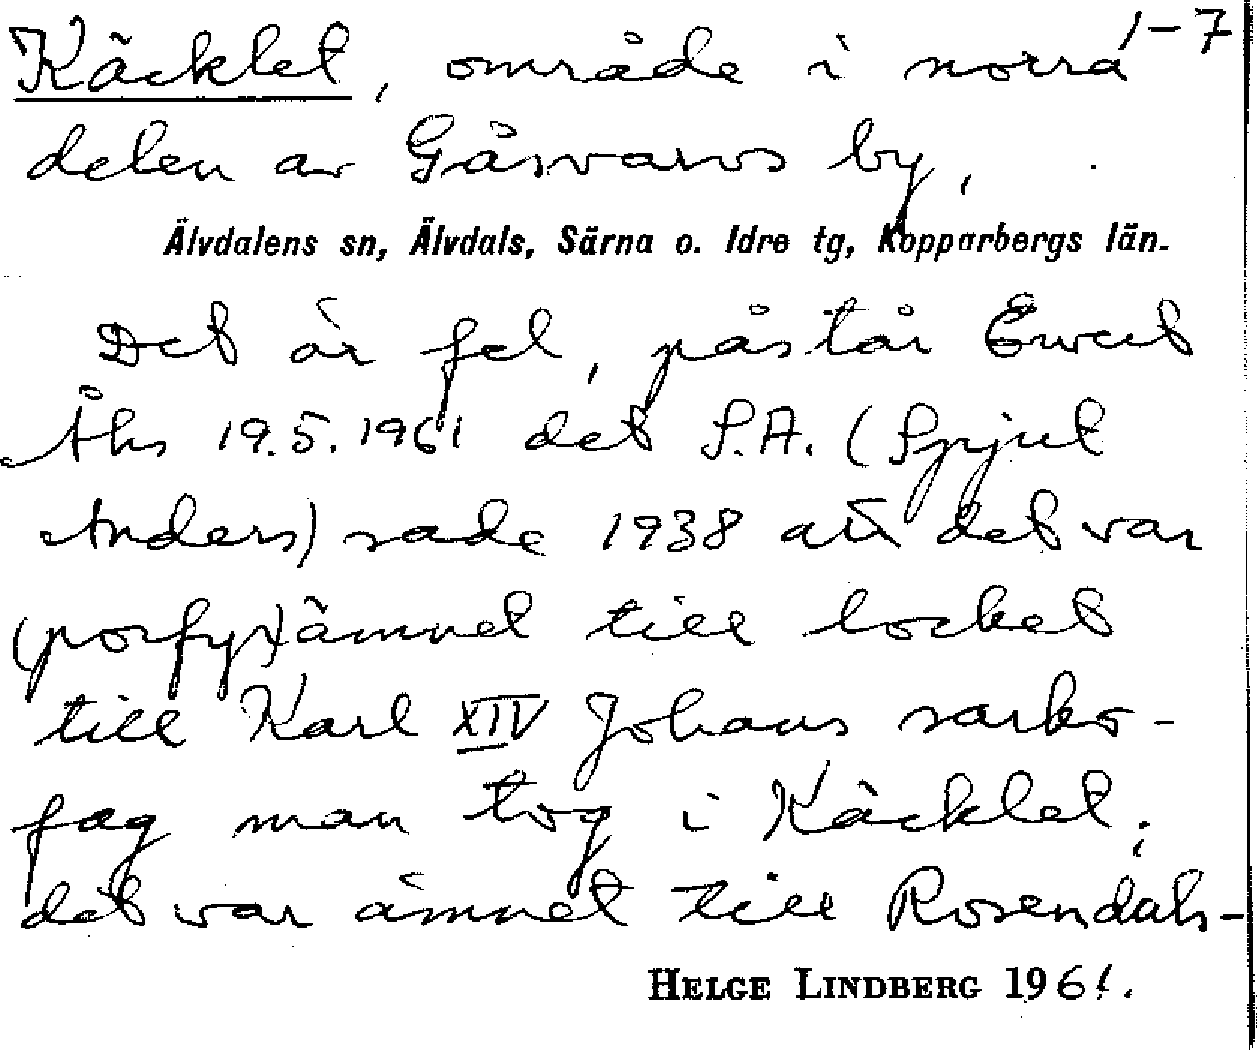 1-7
Käcklet, område i norra
delen av Gåsvarvs by,
Älvdalens sn, Älvdals, Särna o. Idre tg, Kopparbergs län.
Det är fel, påstår Evert
Åhs 19.5.1961 det S.A. (Spjut
Anders) sade 1938 att det var
(porfyr)ämnet till locket
till Karl XIV Johans sarko-
fag man tog i Käcklet;
det var ämnet till Rosendals-
HELGE LINDBERG 1961.